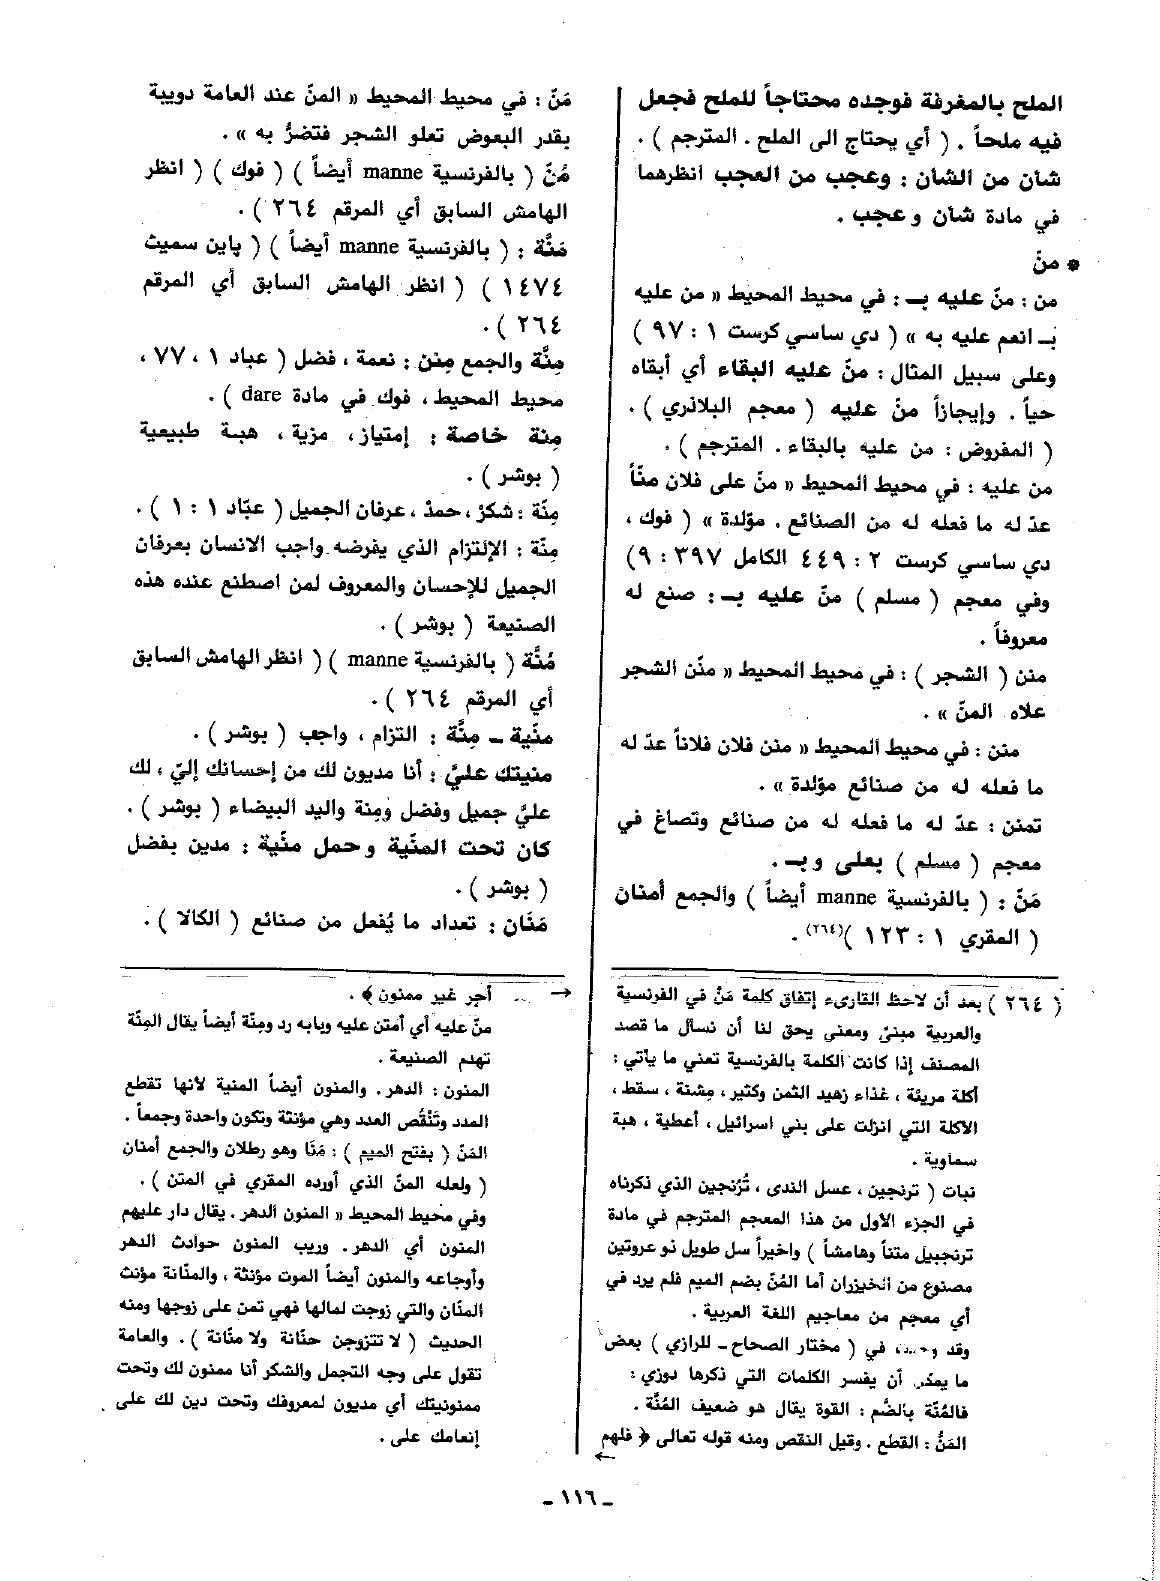 الملح بالمغرفة فوجده محتاجاً للملح فجعل
فيه ملحاً . ( أي يحتاج الى الملح . المترجم ) .
شأن من الشأن : وعجب من العجب انظرهما
في مادة شأن وعجب .
* منّ
من : منّ عليه بـ : في محيط المحيط « من عليه
بـ انعم عليه به » ( دي ساسي كرست ١ : ٩٧ )
وعلى سبيل المثال : منّ عليه البقاء أي أبقاه
حياً . وإيجازاً منّ عليه ( معجم البلاذري ) .
( المفروض : من عليه بالبقاء . المترجم ) .
من عليه : في محيط المحيط « منّ على فلان منّاً
عدّ له ما فعله له من الصنائع . مؤلدة » ( فوك ،
دي ساسي كرست ٢ : ٤٤٩ الكامل ٣٩٧ : ٩)
وفي معجم ( مسلم ) منّ عليه بـ : صنع له
معروفاً .
منن ( الشجر ) : في محيط المحيط « منّن الشجر
علاه المنّ » .
منن : في محيط المحيط « منن فلان فلاناً عدّ له
ما فعله له من صنائع مؤلدة » .
تمنن : عدّ له ما فعله له من صنائع وتصاغ في
معجم ( مسلم ) بعلى وبـ .
مَنّ : ( بالفرنسية manne أيضاً ) والجمع أمنان
( المقري ١ : ١٢٣ )(٢٦٤) .
( ٢٦٤ ) بعد أن لاحظ القارىء إتفاق كلمة مَنّ في الفرنسية
والعربية مبنىً ومعنى يحق لنا أن نسأل ما قصد
المصنف إذا كانت الكلمة بالفرنسية تعني ما يأتي :
أكلة مريئة ، غذاء زهيد الثمن وكثير ، مِشنة ، سقط ،
الأكلة التي انزلت على بني اسرائيل ، أعطية ، هبة
سماوية .
نبات ( ترنجين ، عسل الندى ، تُرُنجين الذي ذكرناه
في الجزء الأول من هذا المعجم المترجم في مادة
ترنجبيل متناً وهامشاً ) واخيراً سل طويل ذو عروتين
مصنوع من الخيزران أما المُنّ بضم الميم فلم يرد في
أي معجم من معاجيم اللغة العربية .
وقد في ( مختار الصحاح ـ للرازي ) بعض
ما يمكن أن يفسر الكلمات التي ذكرها دوزي :
فالمُنّة بالضُم : القوة يقال هو ضعيف المُنَّة .
المَنُّ : القطع . وقيل النقص ومنه قوله تعالى ﴿ فلهم
←
مَنّ : في محيط المحيط « المنّ عند العامة دويبة
بقدر البعوض تعلو الشجر فتضرُّ به » .
مُنّ ( بالفرنسية manne أيضاً ) ( فوك ) ( انظر
الهامش السابق أي المرقم ٢٦٤ ) .
مَنَّة : ( بالفرنسية manne أيضاً ) ( پاين سميث
١٤٧٤ ) ( انظر الهامش السابق أي المرقم
٢٦٤ ) .
مِنَّة والجمع مِنن : نعمة ، فضل ( عباد ١ ، ٧٧ ،
محيط المحيط ، فوك في مادة dare ) .
مِنة خاصة : إمتياز ، مزية ، هبة طبيعية
( بوشر ) .
مِنّة : شكرٌ ، حمدٌ ، عرفان الجميل ( عبّاد ١ : ١ ) .
مِنّة : الإلتزام الذي يفرضه واجب الانسان بعرفان
الجميل للإحسان والمعروف لمن اصطنع عنده هذه
الصنيعة ( بوشر ) .
مُنَّة ( بالفرنسية manne ) ( انظر الهامش السابق
أي المرقم ٢٦٤ ) .
منّية ـ مِنَّة : التزام ، واجب ( بوشر ) .
منيتك عليّ : أنا مديون لك من إحسانك إليّ ، لك
عليّ جميل وفضل ومِنة واليد البيضاء ( بوشر ) .
كان تحت المنّية وحمل منّية : مدين بفضل
( بوشر ) .
مَنّان : تعداد ما يُفعل من صنائع ( الكالا ) .
→ أجر غير ممنون ﴾ .
منّ عليه أي أمتن عليه وبابه رد ومِنّة أيضاً يقال المِنّة
تهدم الصنيعة .
المنون : الدهر . والمنون أيضاً المنية لأنها تقطع
المدد وتَنْقُص العدد وهي مؤنثة وتكون واحدة وجمعاً .
المَنّ ( بفتح الميم ) : مَنَا وهو رطلان والجمع أمنان
( ولعله المنّ الذي أورده المقري في المتن ) .
وفي محيط المحيط « المنون الدهر . يقال دار عليهم
المنون أي الدهر . وريب المنون حوادث الدهر
وأوجاعه والمنون أيضاً الموت مؤنثة ، والمنّانة مؤنث
المنّان والتي زوجت لمالها فهي تمن على زوجها ومنه
الحديث ( لا تتزوجن حنّانة ولا منّانة ) . والعامة
تقول على وجه التجمل والشكر أنا ممنون لك وتحت
ممنونيتك أي مديون لمعروفك وتحت دين لك على
إنعامك على .
ـ ١١٦ ـ